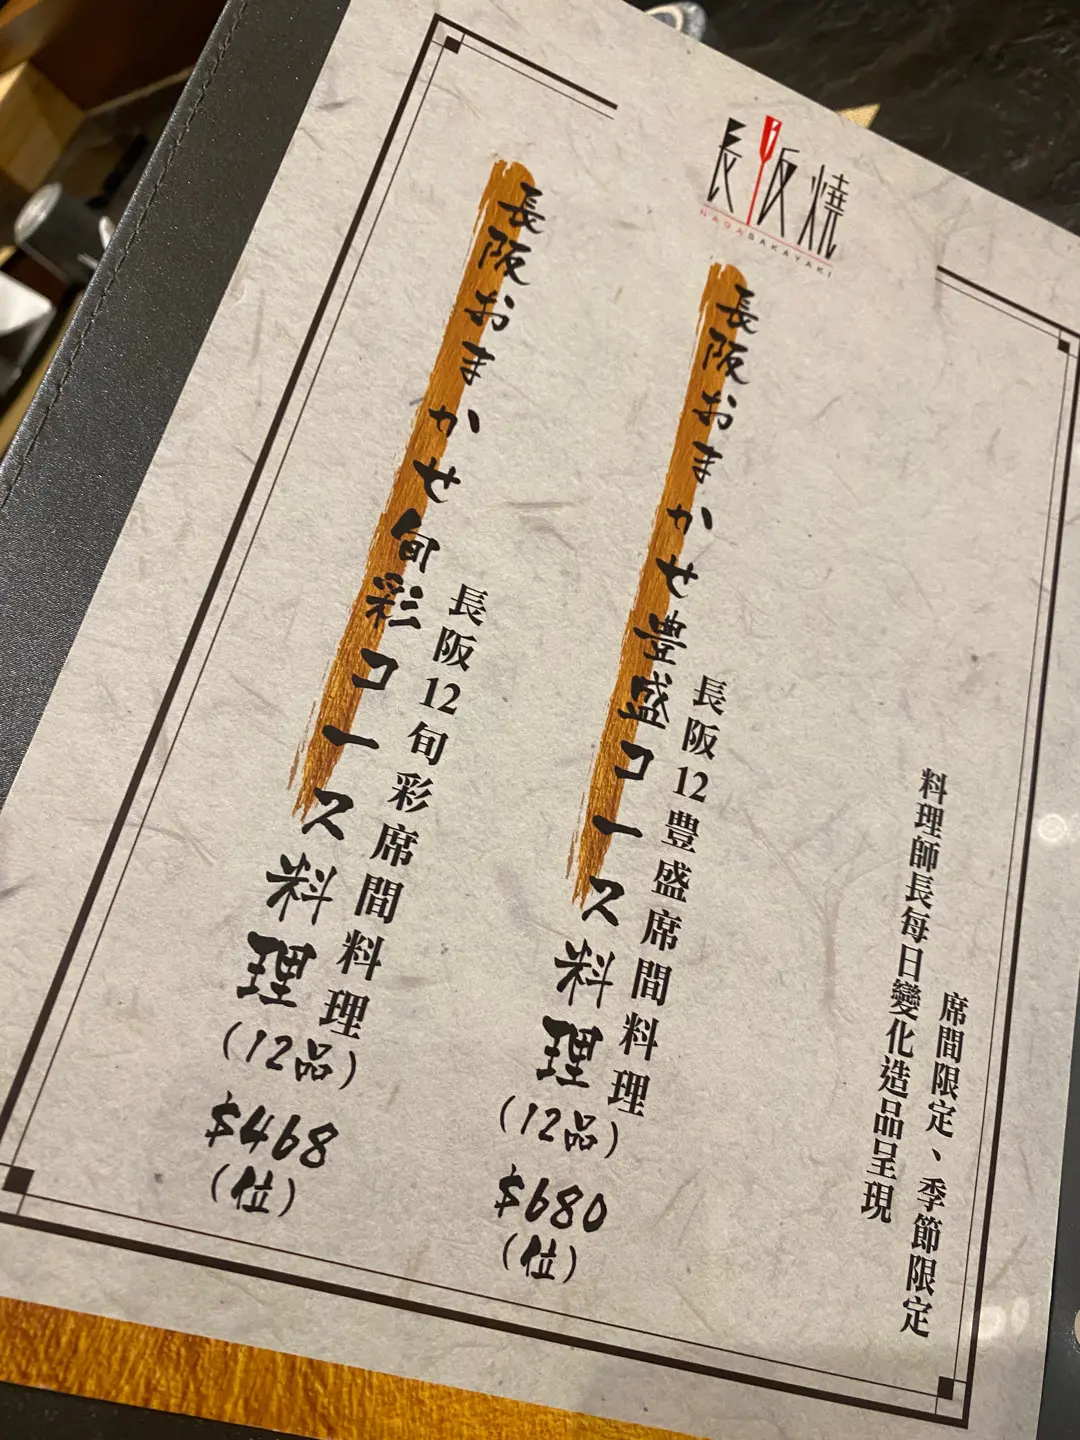 長阪燒
NAGASAKAYAKI
席間限定、季節限定
料理師長每日變化造品呈現
長阪おまかせ豊盛コース料理(12品)
$680
(位)
長阪12豊盛席間料理
長阪おまかせ旬彩コース料理(12品)
$468
(位)
長阪12旬彩席間料理